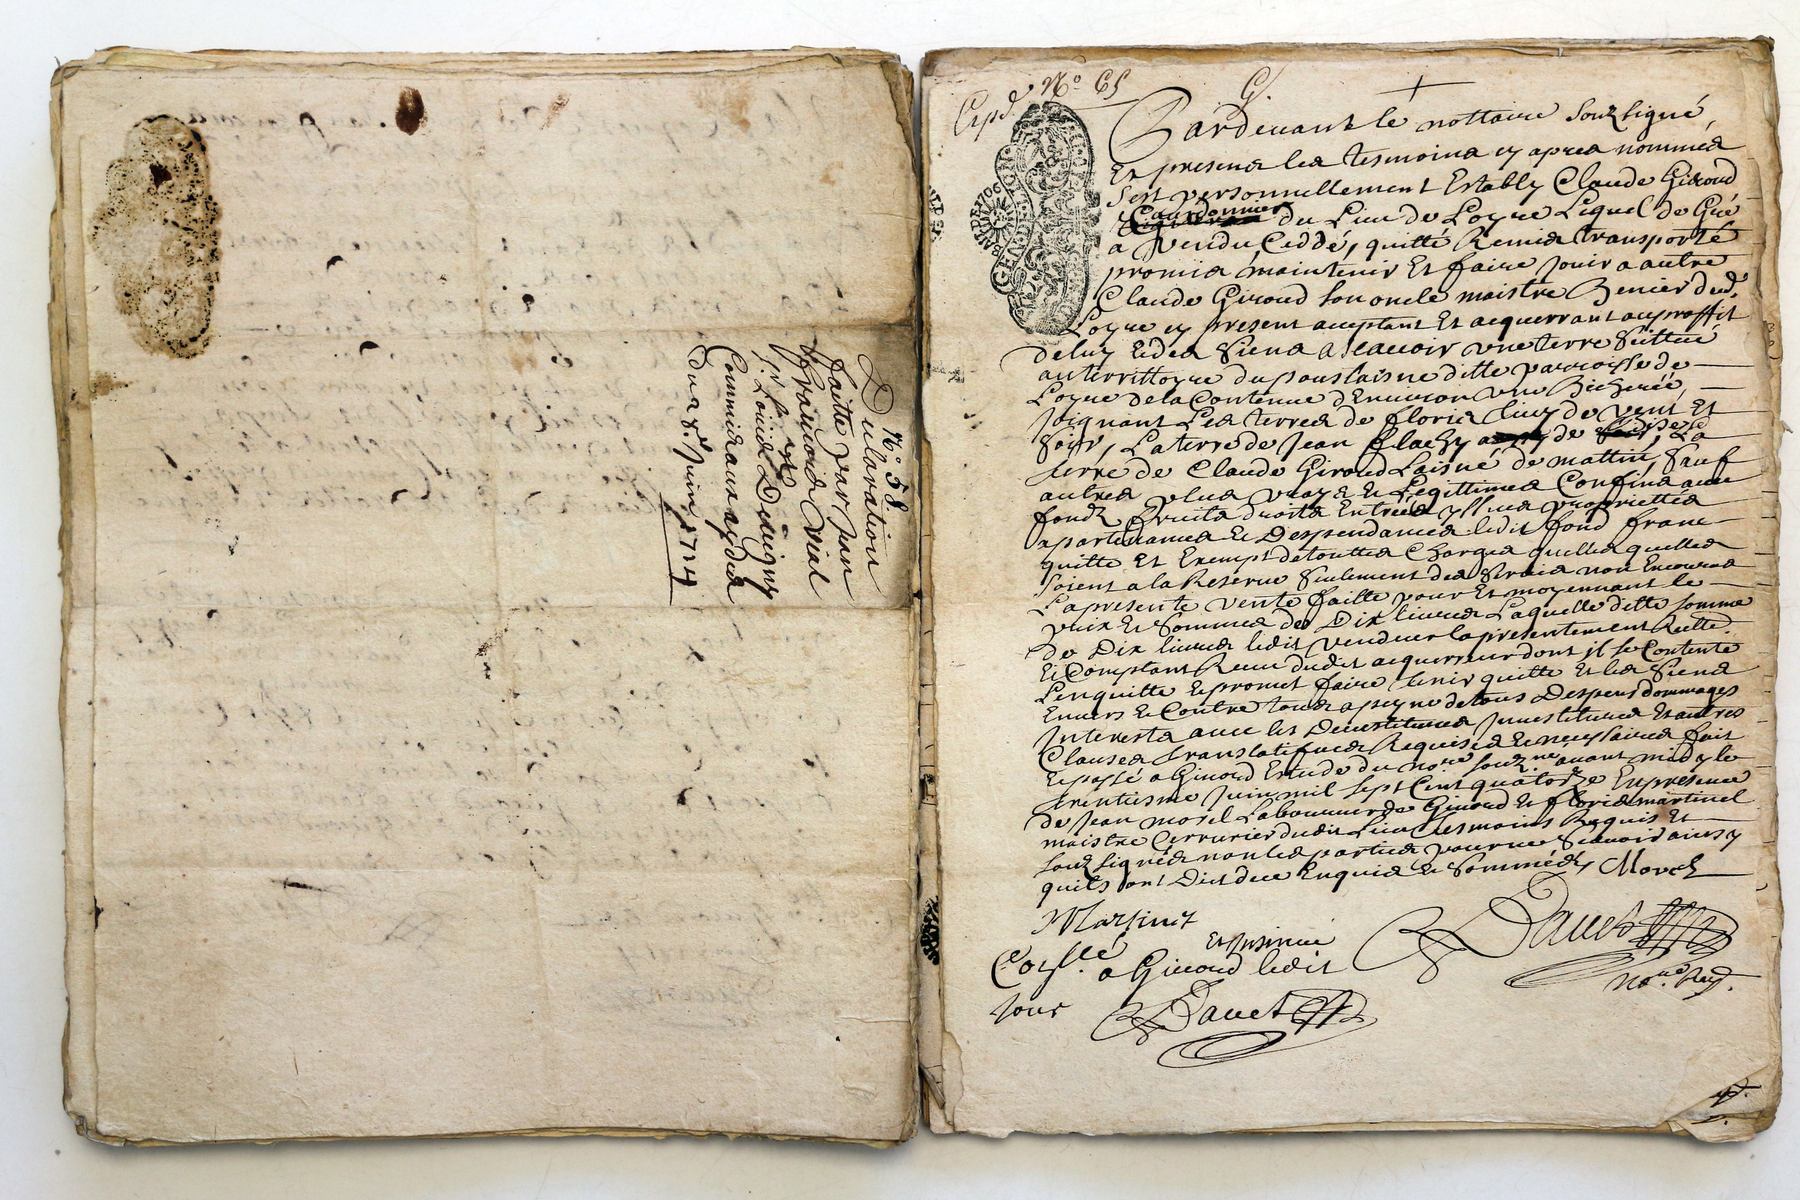 N.° 58.
Declaration
faitte par Jean
François Vial
Sr. Louis Deuigny
Commis aux aydes
du 28e. Juin 1714
Expd. N.° 65
G.
Pardeuant le nottaire souzsigné,
Et presens les tesmoins cy apres nommés
s'est personnellement Estably Claude Giroud
Cordonnier du Lieu de Loyre Lequel de Gré
a vendu Ceddé, quitté Remis transporté
promis maintenir Et faire jouir a autre
Claude Giroud son oncle maistre dud.
Loyre cy present acceptant Et acquerrant au proffit
de luy Et des siens a scauoir vne terre scittuée
au territtoyre du ditte parroisse de
Loyre de la Contenue d'Enuiron vne Bicherée,
Joignant Les terres de florie de vent Et
soir, La terre de Jean flachy de bize, La
terre de Claude Giroud Laisné de mattin, sauf
autres plus vrays Et Legittimes Confins auec
fondz fruits droits Entrées yssues proprietés
apartenances Et Despendances ledit fond franc
quitte Et Exempt de touttes Charges quelles quelles
soient a la Reserue seulement des seruis non Encourus
La presente vente faitte pour Et moyennant le
prix Et Somme de Dix liures Laquelle ditte somme
de Dix liures ledit vendeur la presentement Reelle.
Et Comptant Receu dudit acquerreur dont il se Contente
L'en quitte Et promet faire tenir quitte Et les siens
Enuers Et Contre tous a peyne de tous Despens dommages
Interests auec les Deuestitures Inuestitures Et autres
Clauses translatifues Requises Et necessaires fait
Et passé a Giuord Estude du nore. souz.né auant midy le
trentiesme Juin mil sept Cent quatorze En presence
de Jean morel Laboureur de Giuord Et florie martinet
maistre Cerrurier dudit Lieu tesmoins Requis Et
souzsignés non les parties pour ne scauoir ainsy
quils ont Dict de ce Enquis Et sommés Morel
Martinet
Dauet
nore. Roy.
Collé
a Giuord ledit
jour
Dauet